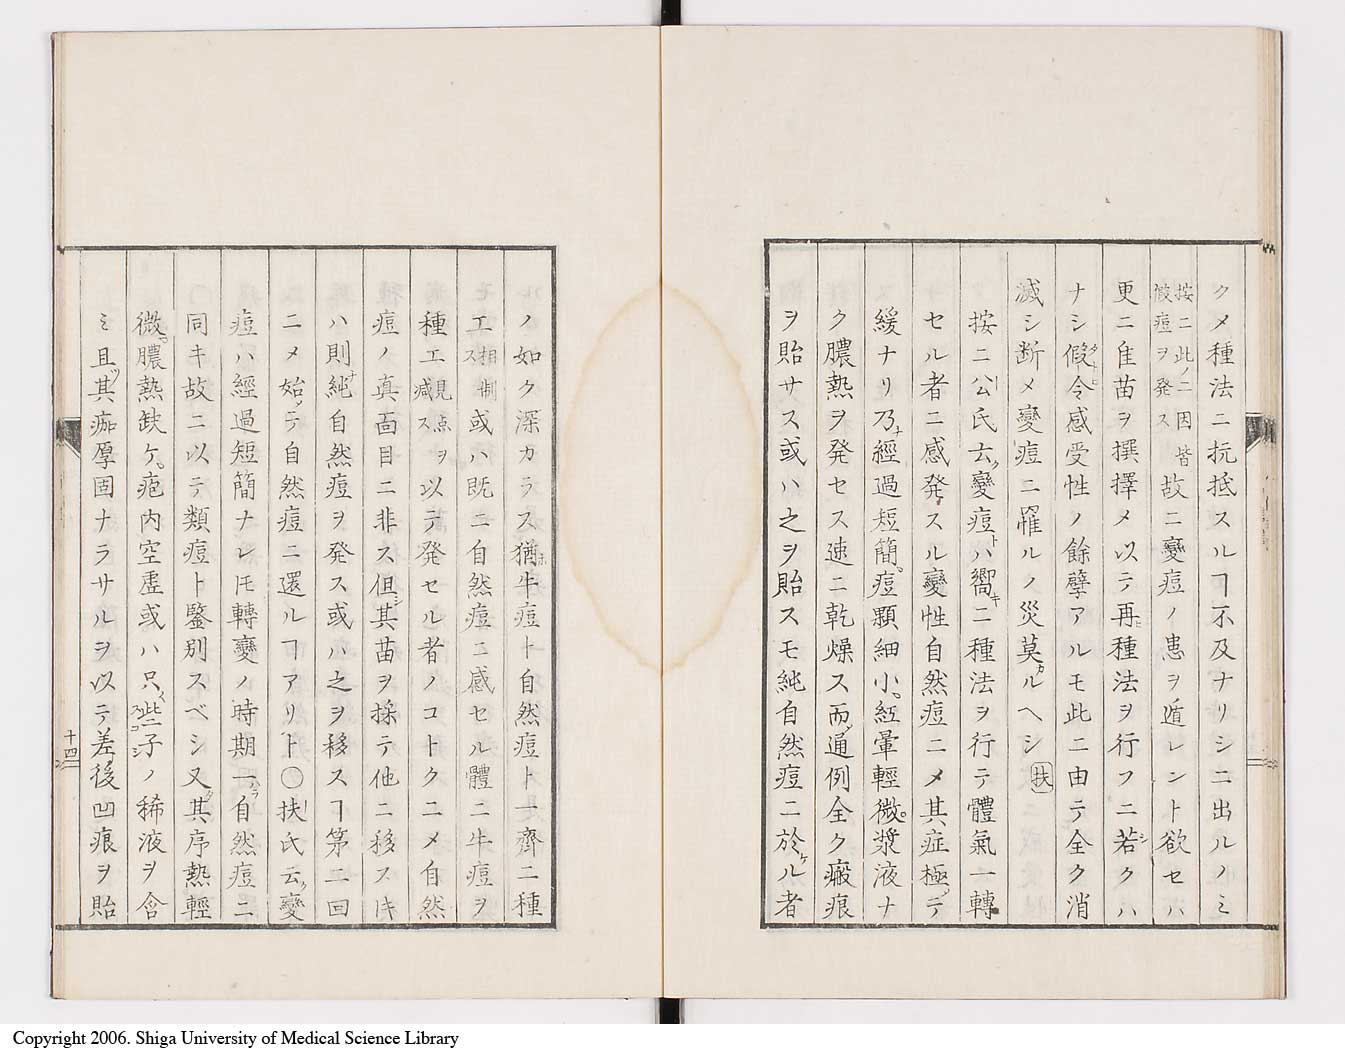 クメ種法ニ抗抵スルヿ不及ナリシニ出ルノミ
按ニ此ノ二因皆
假痘ヲ発ス
故ニ變痘ノ患ヲ遁レント欲セハ
更ニ隹苗ヲ撰擇メ以テ再種法ヲ行フニ若クハ
ナシ假令感受性ノ餘孽アルモ此ニ由テ全ク消
滅シ断メ變痘ニ罹ルノ災莫ルヘシ扶
按ニ公氏云變痘ハ嚮ニ種法ヲ行テ體氣一轉
セル者ニ感発スル變性自然痘ニメ其症極テ
緩ナリ乃經過短簡痘顆細小紅暈輕微漿液ナ
ク膿熱ヲ発セス速ニ乾燥ス而通例全ク瘢痕
ヲ貽サス或ハ之ヲ貽スモ純自然痘ニ於ル者
ノ如ク深カラス猶牛痘ト自然痘ト一齊ニ種
エ相制
ス
或ハ既ニ自然痘ニ感セル體ニ牛痘ヲ
種エ見点
減ス
ヲ以テ発セル者ノコトクニメ自然
痘ノ真面目ニ非ス但其苗ヲ採テ他ニ移ス𪜈
ハ則純自然痘ヲ発ス或ハ之ヲ移スヿ第二回
ニメ始テ自然痘ニ還ルヿアリト〇扶氏云變
痘ハ經過短簡ナレ𪜈轉變ノ時期一自然痘ニ
同キ故ニ以テ類痘ト鑒別スベシ又其序熱輕
微膿熱缺ケ疱内空虚或ハ只些子ノ稀液ヲ含
ミ且其痂厚固ナラサルヲ以テ差後凹痕ヲ貽
十四
Copyright 2006. Shiga University of Medical Science Library